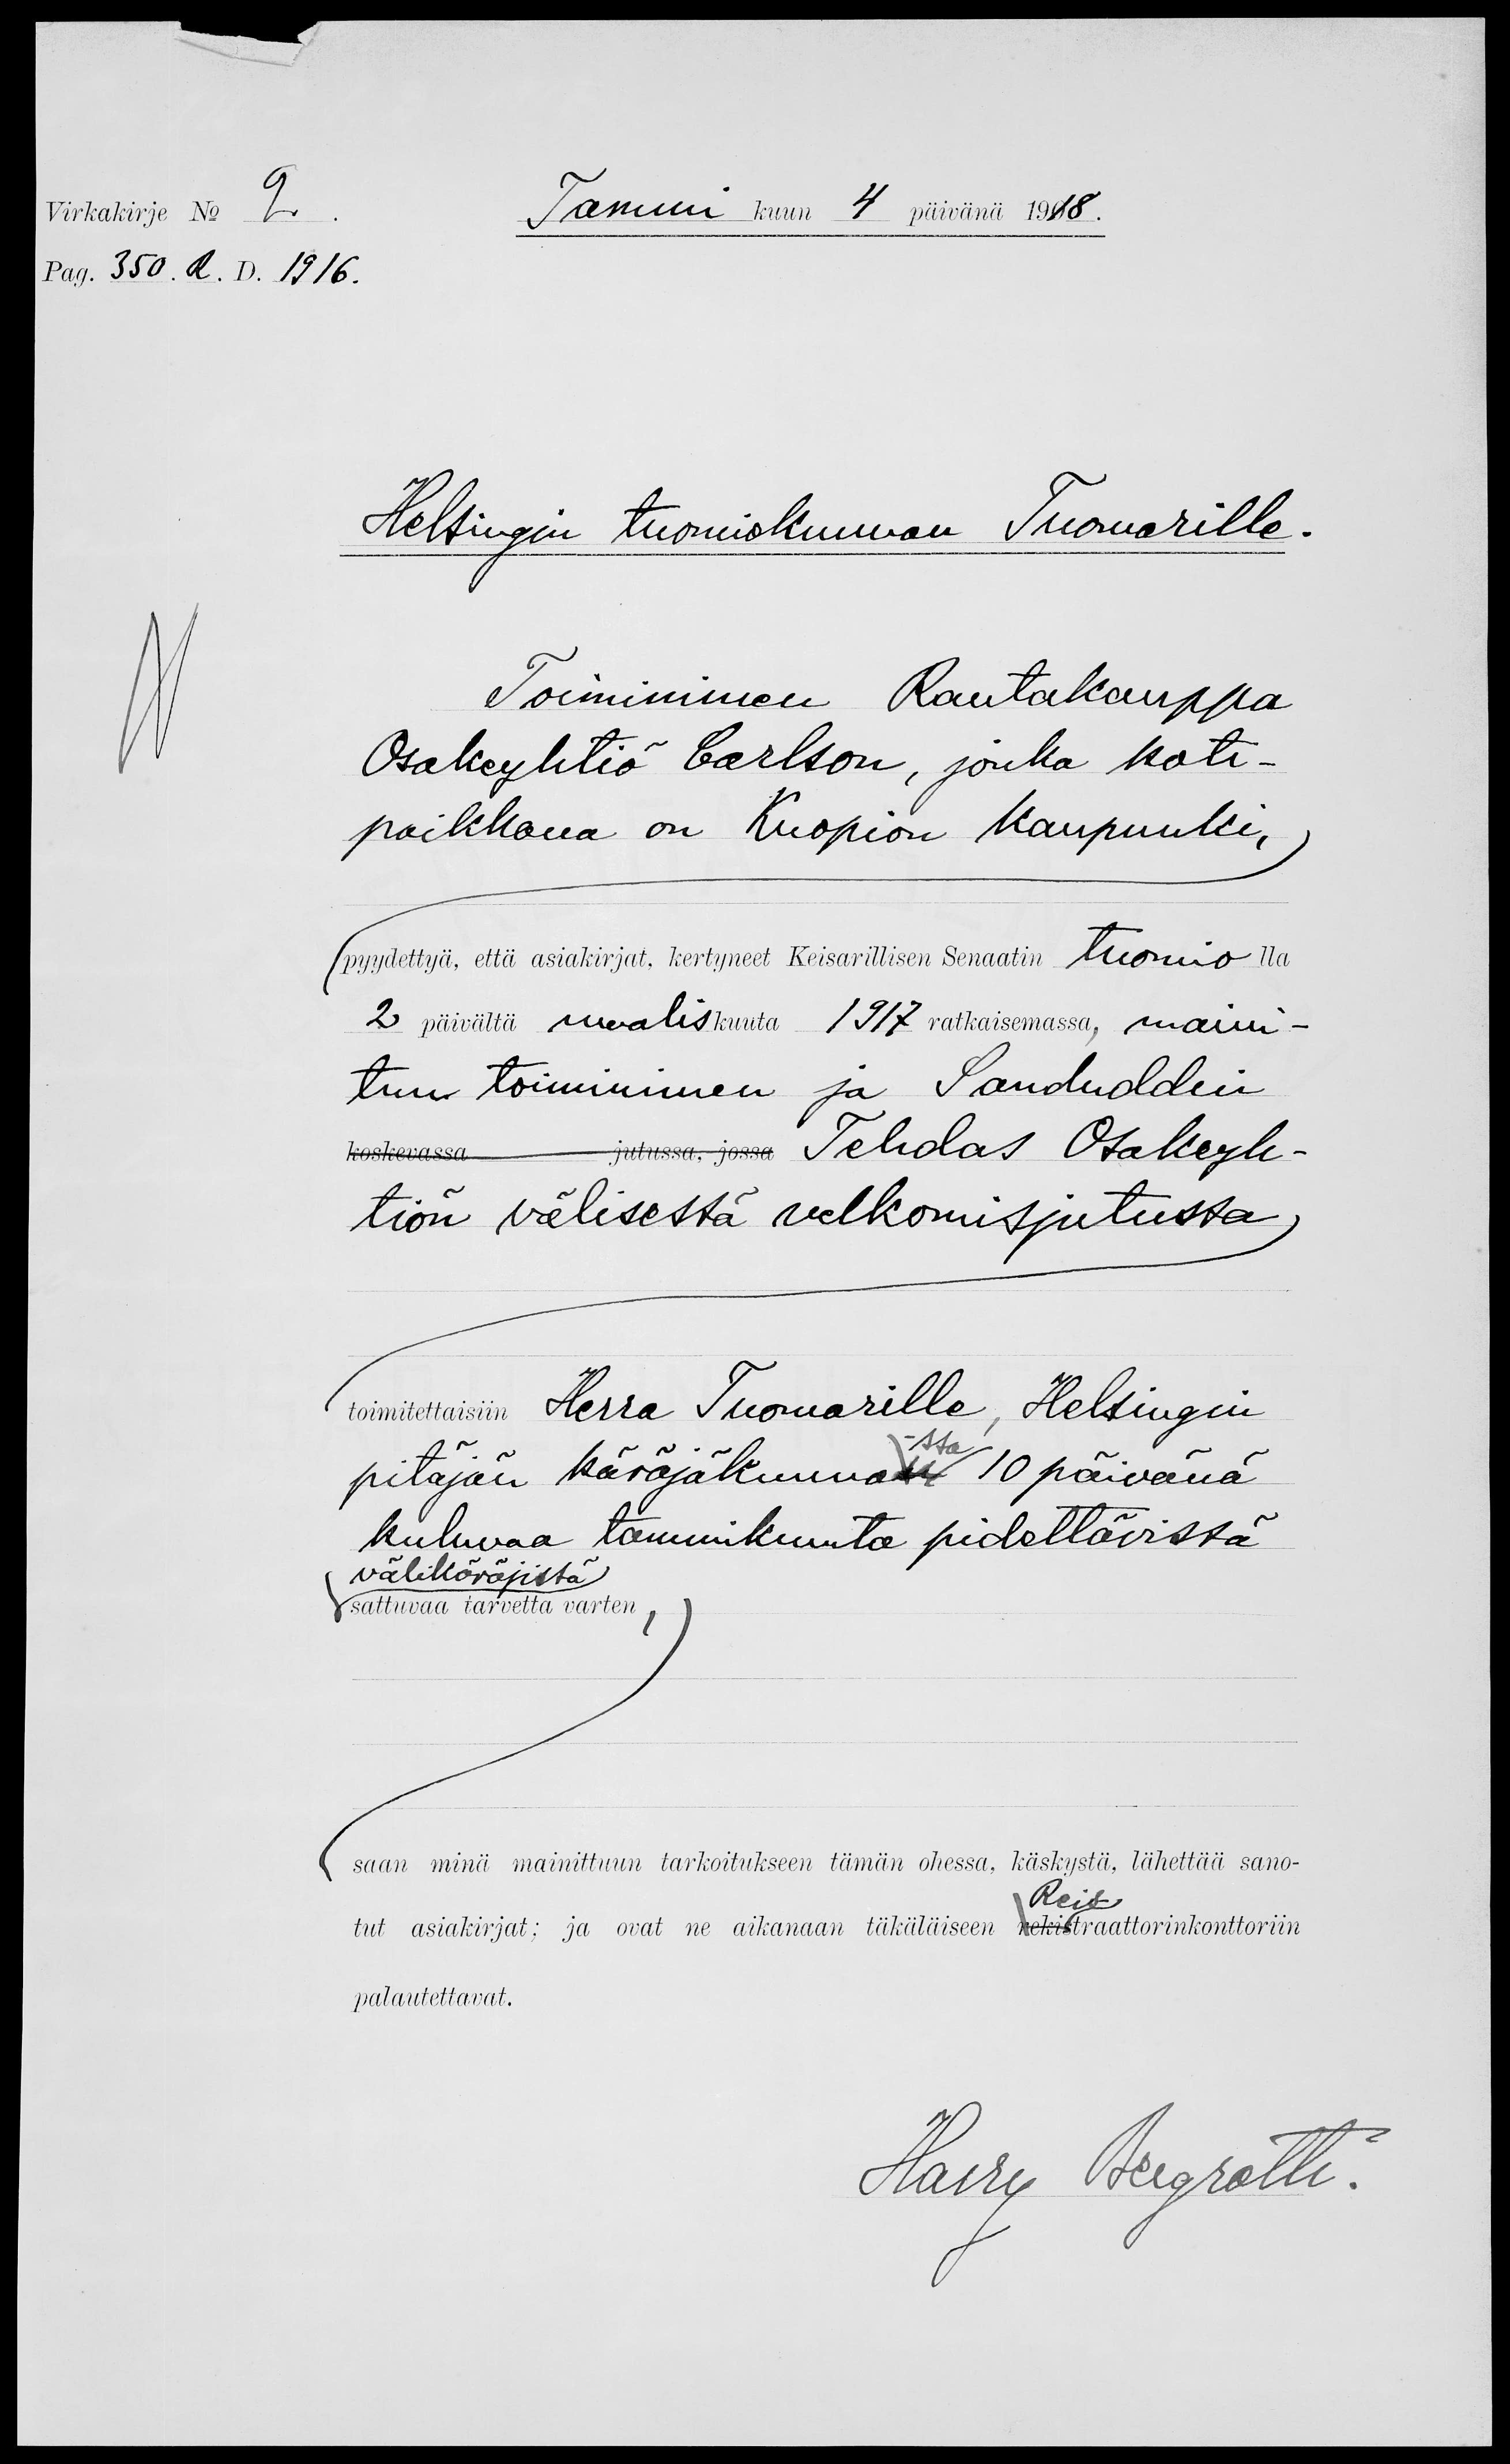 Virkakirje № 2.
Tammi kuun 4 päivänä 1918.
Pag. 350. A. D. 1916.
Helsingin tuomiokunnan Tuomarille.
Toiminimen Rautakauppa
Osakeyhtiö Carlson, jonka koti-
paikkana on Kuopion kaupunki,
pyydettyä, että asiakirjat, kertyneet Keisarillisen Senaatin tuomio lla
2 päivältä maaliskuuta 1917 ratkaisemassa, maini-
tun toiminimen ja Sandudden
koskevassa jutussa, jossa Tehdas Osakeyh-
tiön välisestä velkomisjutussa,
toimitettaisiin Herra Tuomarille, Helsingin
-ssa
pitäjän käräjäkunnan 10 päivänä
kuluvaa tammikuuta pidettävissä
välikäräjistä
sattuvaa tarvetta varten,
saan minä mainittuun tarkoitukseen tämän ohessa, käskystä, lähettää sano-
Reis
tut asiakirjat; ja ovat ne aikanaan täkäläiseen rekistraattorinkonttoriin
palautettavat.
Harry Bergroth.